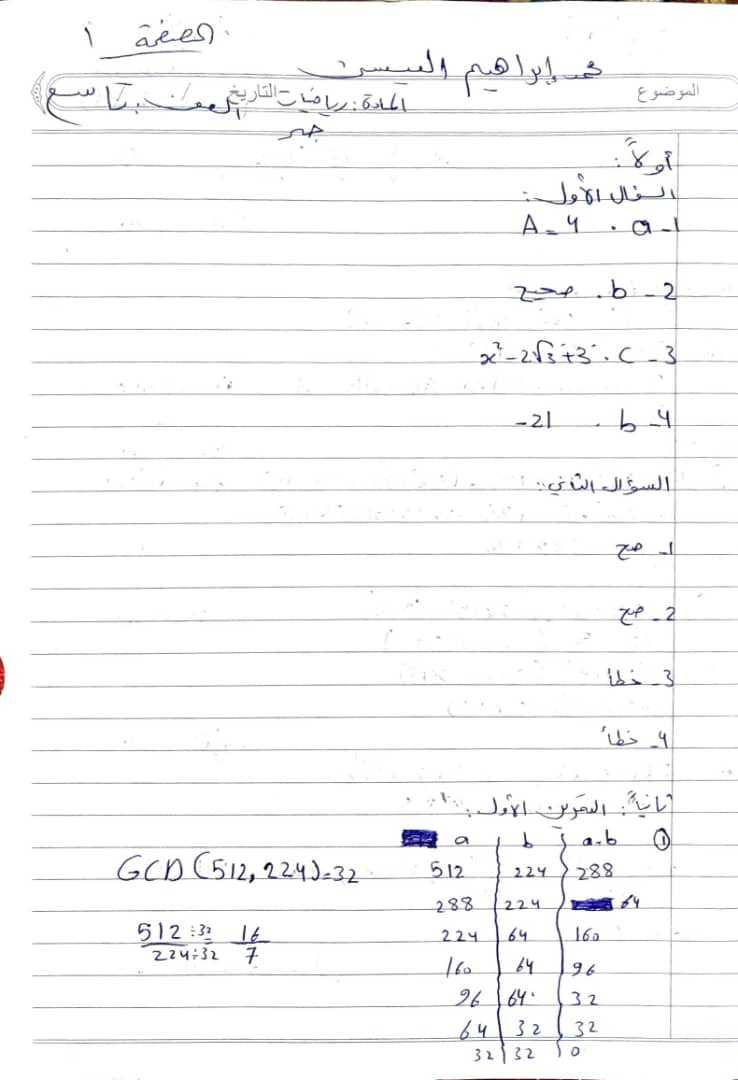 الصفحة ١
محمد إبراهيم العيسى
الموضوع
المادة: رياضيات التاريخ الصف: تاسع
جبر
أولاً:
السؤال الأول:
1-a . A=4
2-b . صحيح
3-C . x²-2√3+3
4-b . -21
السؤال الثاني:
1- صح
2- صح
3- خطأ
4- خطأ
ثانياً: التمرين الأول:
① a b a-b
GCD(512,224)=32 512 224 288
288 224 64
512÷32/224÷32 = 16/7 224 64 160
160 64 96
96 64 32
64 32 32
32 32 0